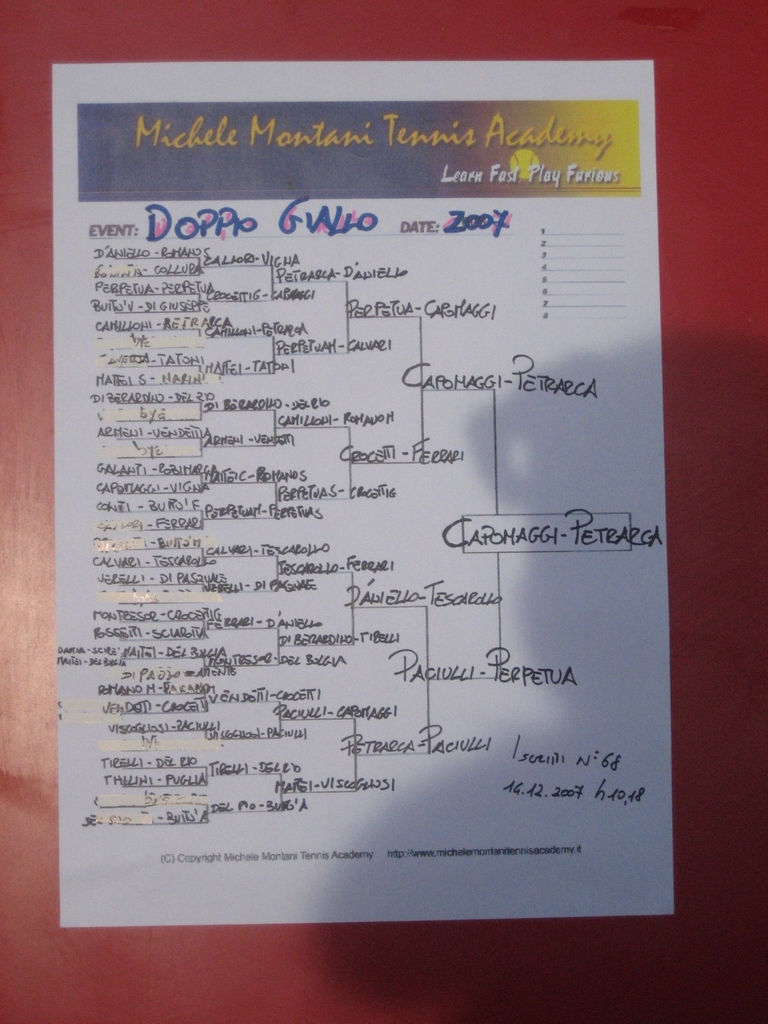 Michele Montani Tennis Academy
Learn Fast, Play Furious
EVENT: DOPPIO GIALLO DATE: 2007
1
2
3
4
5
6
7
8
D'ANIELLO - ROMANO S
COLLURA
PERPETUA - PERPETUA
BUITU'V - DI GIUSEPPE
CAMILLONI - PETRARCA
bye
TATONI
MATTEI S - MARINI
DI BERARDINO - DEL RIO
bye
ARMENI - VENDETTI
bye
GALANTI -
CAPOMAGGI - VIGNA
CONTI - BUITU'F
FERRARI
CALVARI - TESCAROLLO
VERELLI - DI PASQUALE
MONTRESOR - CROCETTI G
ROSSETTI - SCIAROTTA
MATTEI - DEL BUGLIA
DI PAOLO -
ROMANO M -
VENDETTI - CROCETTI
VISCOGLIOSI - PACIULLI
bye
TIRELLI - DEL RIO
PUGLIA
bye
BUITU'A
VIGNA
CROCETTI G - CAPOMAGGI
CAMILLONI - PETRARCA
MATTEI - TATONI
DI BERARDINO - DEL RIO
ARMENI - VENDETTI
MATTEI C - ROMANO S
PERPETUA M - PERPETUA S
CALVARI - TESCAROLLO
VERELLI - DI PASQUALE
FERRARI - D'ANIELLO
MONTRESOR - DEL BUGLIA
VENDETTI - CROCETTI
VISCOGLIOSI - PACIULLI
TIRELLI - DEL RIO
DEL PIO - BUITU'A
PETRARCA - D'ANIELLO
PERPETUA M - CALVARI
CAMILLONI - ROMANO M
PERPETUA S - CROCETTI G
TESCAROLLO - FERRARI
DI BERARDINO - TIRELLI
PACIULLI - CAPOMAGGI
MATTEI - VISCOGLIOSI
PERPETUA - CAPOMAGGI
CROCETTI - FERRARI
D'ANIELLO - TESCAROLLO
PETRARCA - PACIULLI
CAPOMAGGI - PETRARCA
PACIULLI - PERPETUA
CAPOMAGGI - PETRARCA
ISCRITTI N° 68
14.12.2007 h 10,18
(C) Copyright Michele Montani Tennis Academy http://www.michelemontanitennisacademy.it